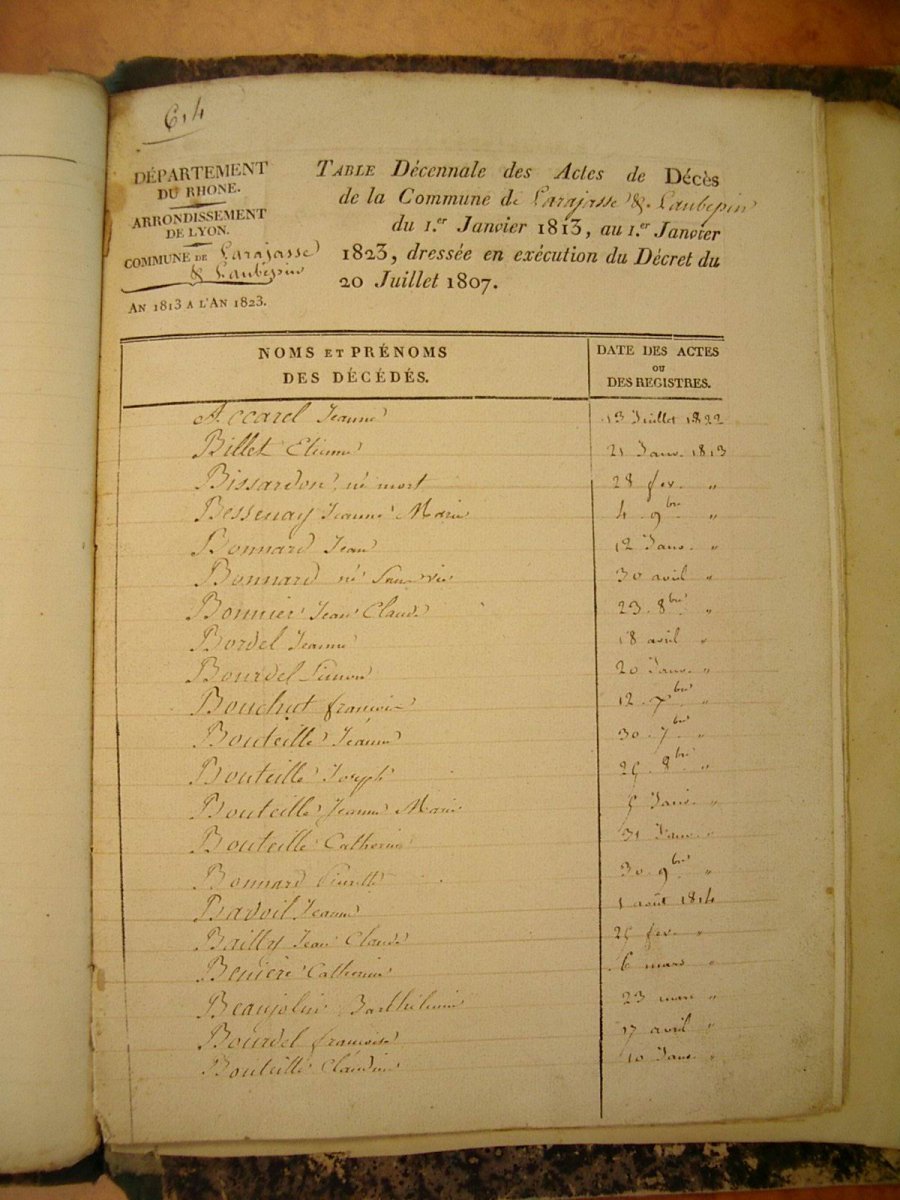 6,4
DÉPARTEMENT
DU RHONE.
ARRONDISSEMENT
DE LYON.
COMMUNE DE Larajasse
& Laubepin
AN 1813 A L'AN 1823.
TABLE Décennale des Actes de Décès
de la Commune de Larajasse & Laubepin
du 1.er Janvier 1813, au 1.er Janvier
1823, dressée en exécution du Décret du
20 Juillet 1807.
NOMS ET PRÉNOMS
DES DÉCÉDÉS.
DATE DES ACTES
OU
DES REGISTRES.
Accarel Jeanne 13 Juillet 1822
Billet Etienne 21 Janv. 1813
Bissardon, né mort 28 fev. "
Bessenay Jeanne Marie 4 9bre "
Bonnard Jean 12 Janv. "
Bonnard né Sans vie 30 avril "
Bonnier Jean Claude 23. 8bre "
Bordel Jeanne 18 avril "
Bourdel Simon 20 Janv. "
Bouchut francois 12. 7bre "
Bouteille Jeanne 30. 7bre "
Bouteille Joseph 25. 8bre "
Bouteille Jeanne Marie 5 Janv. "
Bouteille Catherine 31 Janv. "
Bonnard Pierrette 30. 9bre "
Bavoil Jeanne 1 août 1814
Bailly Jean Claude 25 fev. "
Beniere Catherine 6 mars "
Beaujolin Barthélemie 23 mars "
Bourdel francoise 17 avril "
Bouteille Claudine 10 Janv. "